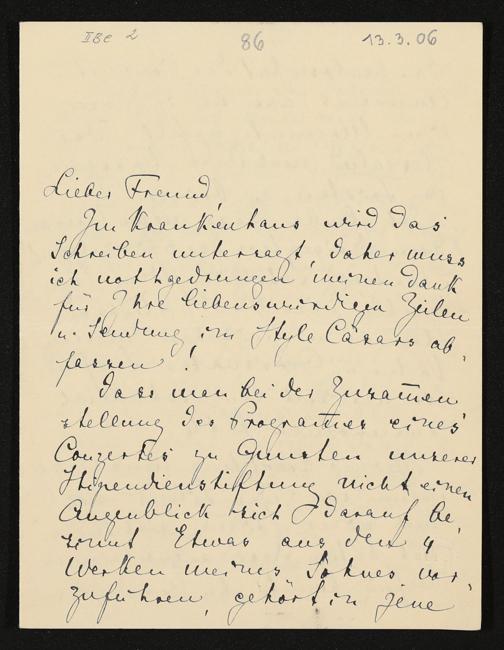 IIBc 2 86 13.3.06
Lieber Freund,
Im Krankenhaus wird das
Schreiben untersagt, daher muss
ich nothgedrungen meinen Dank
für Ihre liebenswürdigen Zeilen
u. Sendung im Style Cäsars ab-
fassen!
Dass man bei der Zusam̅en
stellung des Program̅es eines
Concertes zu Gunsten unserer
Stipendienstiftung nicht einen
Augenblick sich darauf be-
sinnt Etwas aus den 4
Werken meines Sohnes vor-
zuführen, gehört in jene